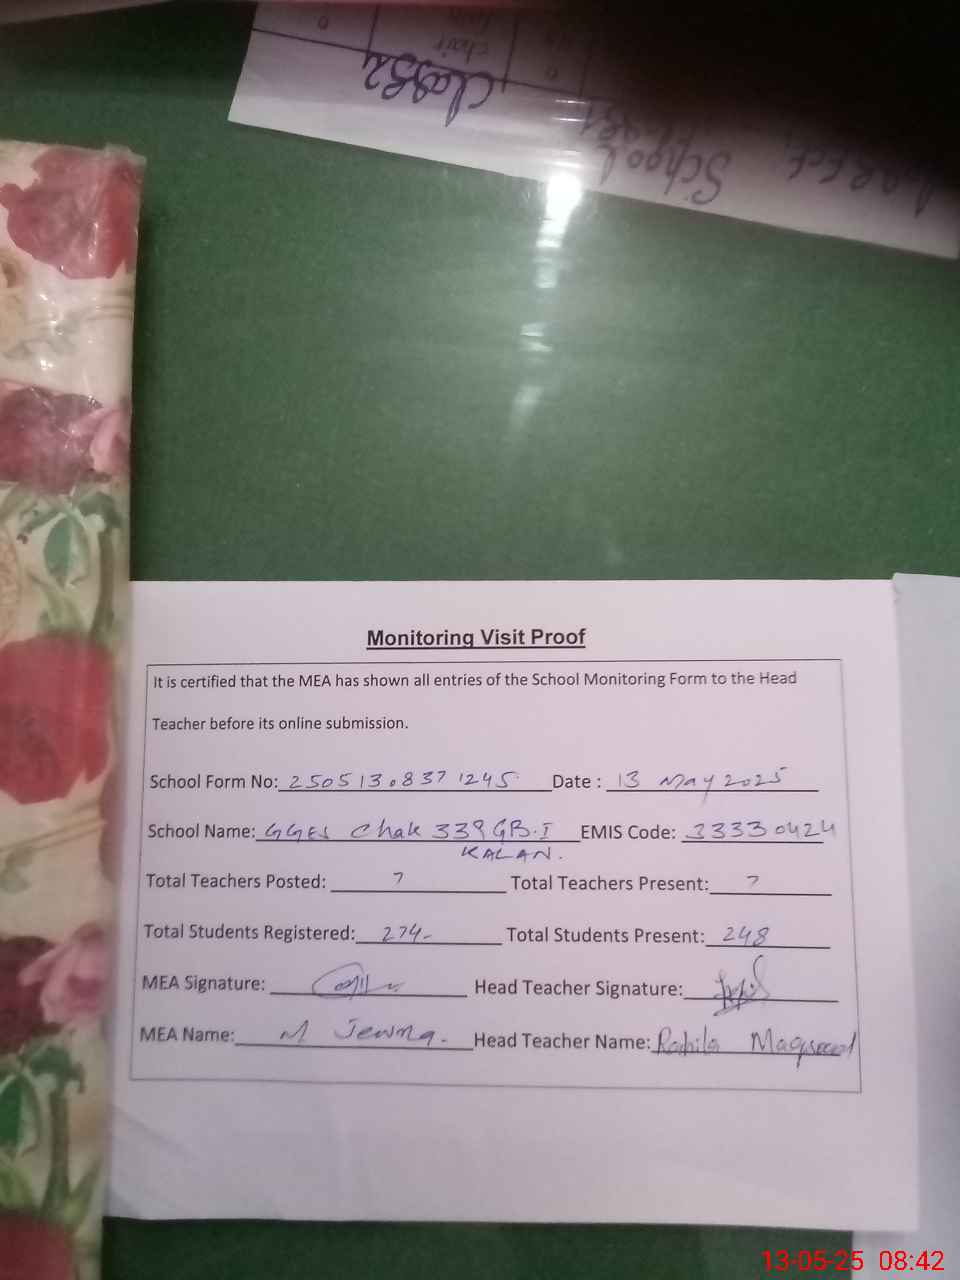 class2
School
Monitoring Visit Proof
It is certified that the MEA has shown all entries of the School Monitoring Form to the Head
Teacher before its online submission.
School Form No: 25051308371245 Date : 13 May 2025
School Name: GGES Chak 339 GB-I EMIS Code: 33330424
KALAN.
Total Teachers Posted: 7 Total Teachers Present: 7
Total Students Registered: 274 Total Students Present: 248
MEA Signature: Head Teacher Signature:
MEA Name: M Head Teacher Name: Rahila Maqsood
13-05-25 08:42